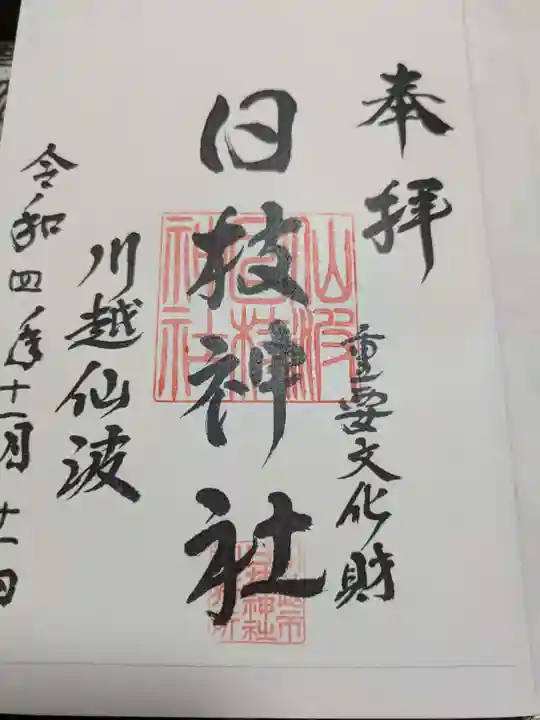 奉拝
重要文化財
日枝神社
仙波日枝神社
川越仙波
令和四年十一月十一日